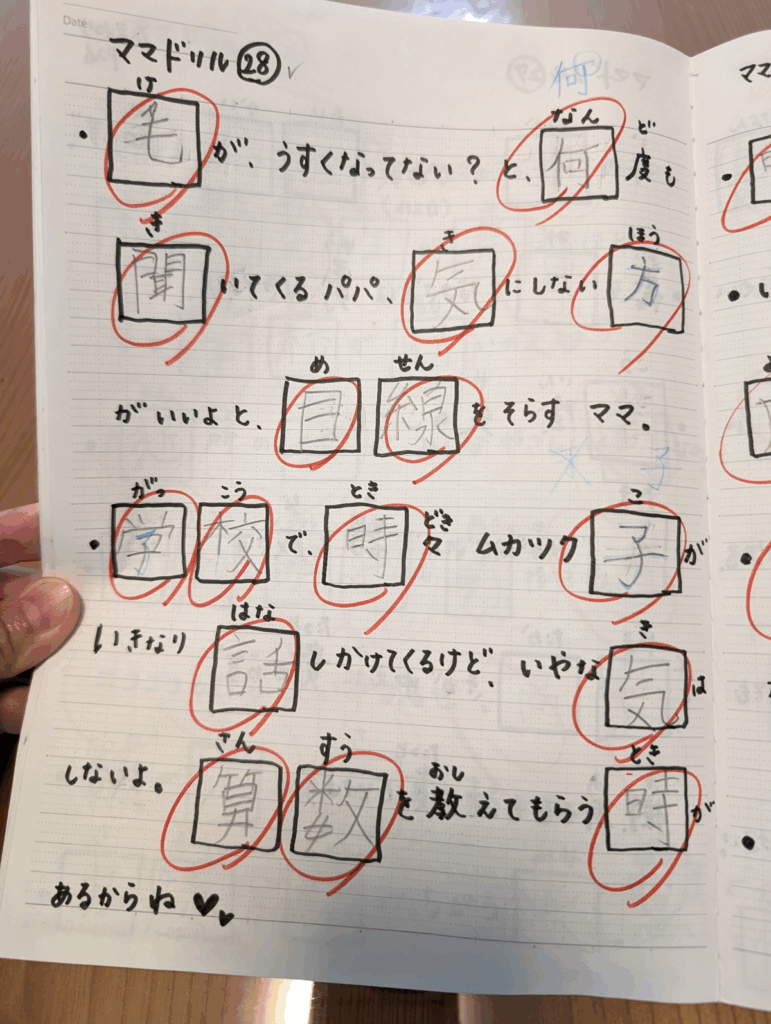 Date
ママドリル 28
何
け なん ど
毛が、うすくなってない?と、何度も
き き ほう
聞いてくるパパ、気にしない方
め せん
がいいよと、目線をそらす ママ。
がっ こう とき どき こ
・学校で、時々 ムカツク子が
はな き
いきなり話しかけてくるけど、いやな気は
さん すう おし とき
しないよ。算数を教えてもらう時が
あるからね♥♥